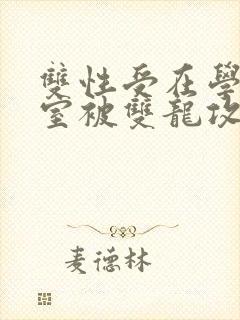 雙性受在學
室被雙龍攻
麦德林